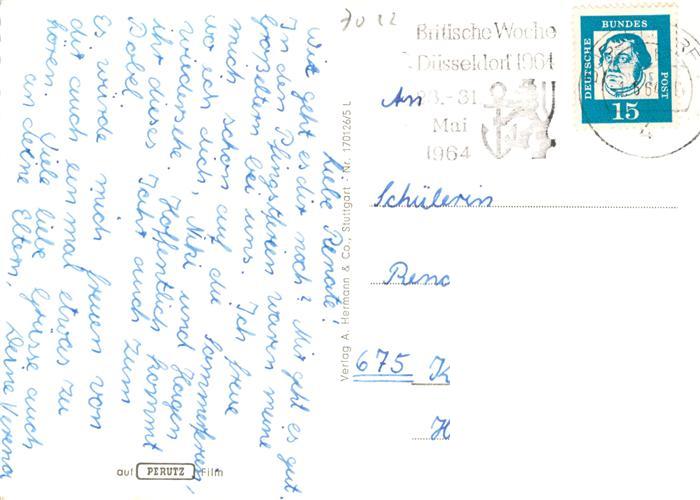 Liebe Renate!
Wie geht es dir noch? Mir geht es gut.
In den Pfingstferien waren meine
Großeltern bei uns. Ich freue
mich schon auf die Sommerferien,
wo ich dich, Niki und Hagen
wiedersehe. Hoffentlich kommt
ihr dieses Jahr auch zum
Es würde mich freuen von
dir auch einmal etwas zu
hören. Viele liebe Grüsse auch
an deine Eltern, Deine Verena
auf PERUTZ Film
Verlag A. Hermann & Co., Stuttgart · Nr. 170126/5 L
70 22
Britische Woche
Düsseldorf 1964
23.-31.
Mai
1964
DEUTSCHE
BUNDES
POST
15
An
Schülerin
Rena
675 K
H